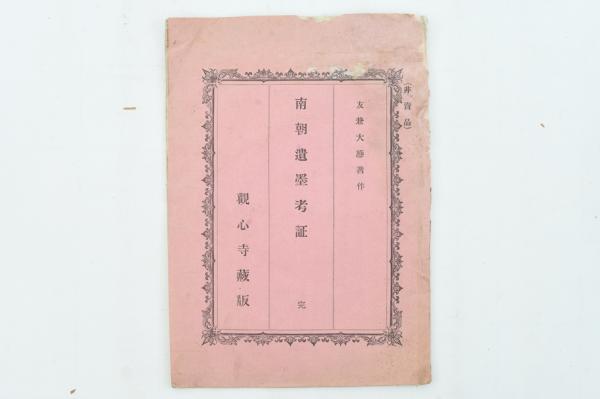 (非賣品)
友 大 著作
南朝遺墨考証 完
觀心寺藏版